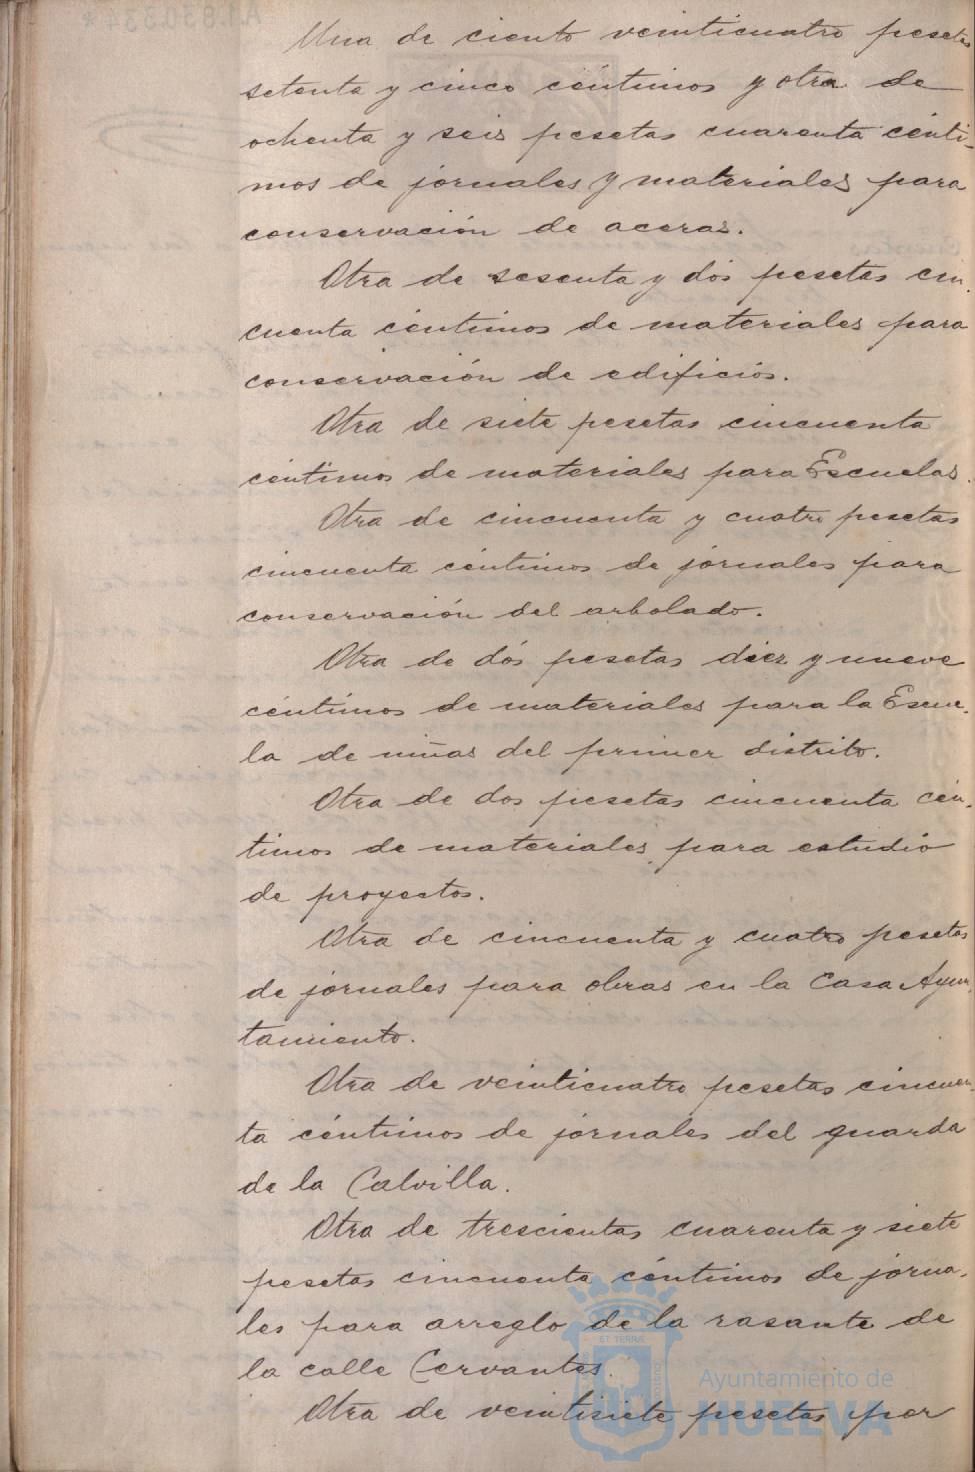 Una de ciento veinticuatro pesetas
setenta y cinco céntimos y otra de
ochenta y seis pesetas cuarenta cénti-
mos de jornales y materiales para
conservación de aceras.
Otra de sesenta y dos pesetas cin-
cuenta céntimos de materiales para
conservación de edificios.
Otra de siete pesetas cincuenta
céntimos de materiales para Escuelas.
Otra de cincuenta y cuatro pesetas
cincuenta céntimos de jornales para
conservación del arbolado.
Otra de dós pesetas diez y nueve
céntimos de materiales para la Escue-
la de niñas del primer distrito.
Otra de dos pesetas cincuenta cén-
timos de materiales para estudio
de proyectos.
Otra de cincuenta y cuatro pesetas
de jornales para obras en la Casa Ayun-
tamiento.
Otra de veinticuatro pesetas cincuen-
ta céntimos de jornales del guarda
de la Calvilla.
Otra de trescientas cuarenta y siete
pesetas cincuenta céntimos de jorna-
les para arreglo de la rasante de
la calle Cervantes.
Otra de veintisiete pesetas por
Ayuntamiento de
HUELVA